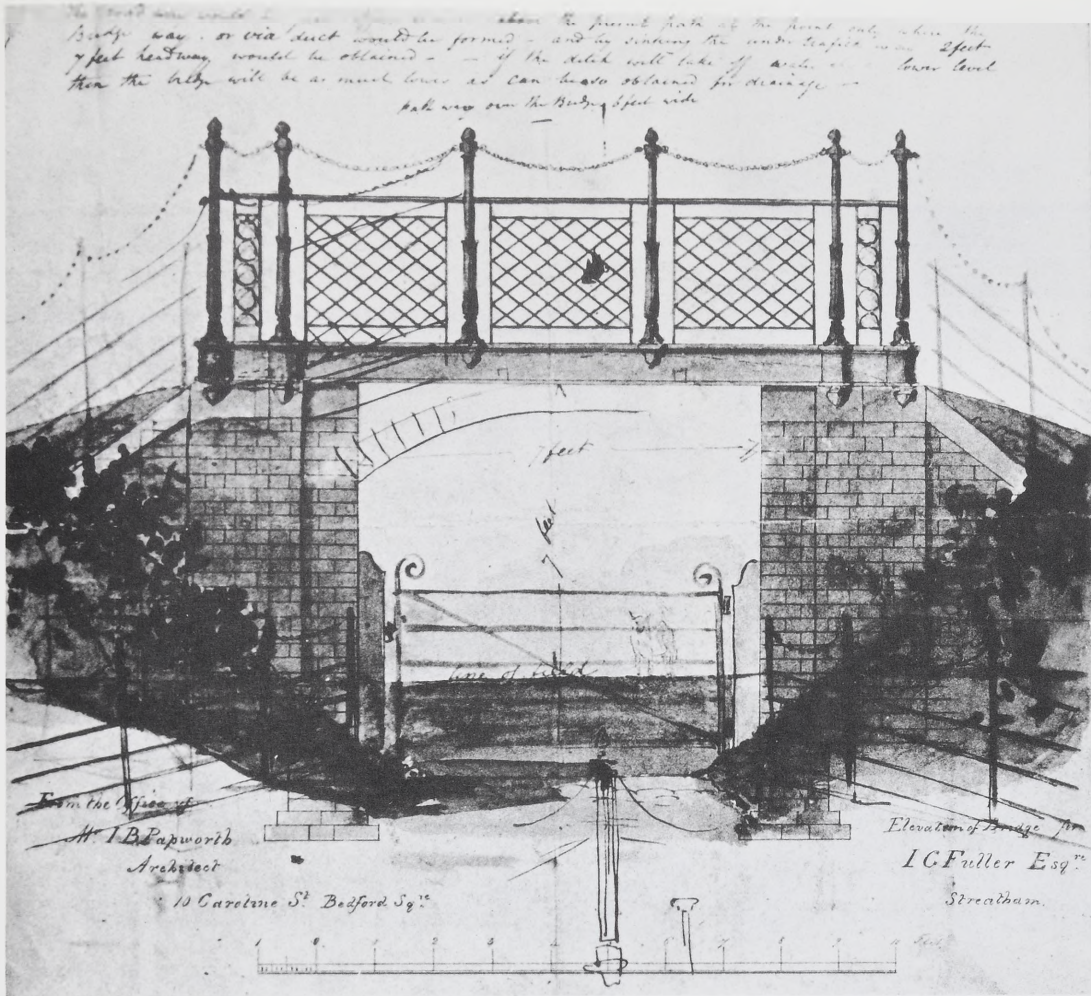 The road line would above the present path at the point only where the
Bridge way . or via duct would be formed - and by sinking the under trafic way 2 feet
7 feet headway would be obtained - - if the ditch will take off water lower level
then the bridge will be as much lower as can be so obtained for drainage -
path way over the Bridge 6 feet wide
7 feet
7 feet
line of field
From the Office of
Mr. I B Papworth
Architect
10 Caroline St. Bedford Sqre.
Elevation of Bridge for
I G Fuller Esqre.
Streatham.
Feet